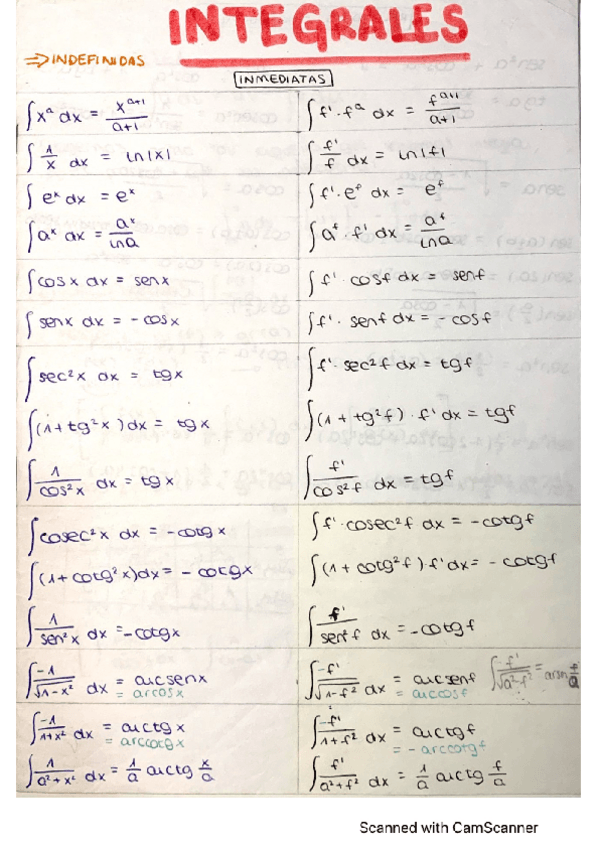 INTEGRALES
⇒ INDEFINIDAS
INMEDIATAS
∫ xᵃ dx = xᵃ⁺¹/(a+1)    ∫ f'·fᵃ dx = fᵃ⁺¹/(a+1)
∫ 1/x dx = ln|x|    ∫ f'/f dx = ln|f|
∫ eˣ dx = eˣ    ∫ f'·eᶠ dx = eᶠ
∫ aˣ dx = aˣ/lna    ∫ aᶠ·f' dx = aᶠ/lna
∫ cos x dx = senx    ∫ f'·cosf dx = senf
∫ senx dx = -cosx    ∫ f'·senf dx = -cosf
∫ sec²x dx = tgx    ∫ f'·sec²f dx = tgf
∫ (1+tg²x) dx = tgx    ∫ (1+tg²f)·f' dx = tgf
∫ 1/cos²x dx = tgx    ∫ f'/cos²f dx = tgf
∫ cosec²x dx = -cotgx    ∫ f'·cosec²f dx = -cotgf
∫ (1+cotg²x) dx = -cotgx    ∫ (1+cotg²f) f' dx = -cotgf
∫ 1/sen²x dx = -cotgx    ∫ f'/sen²f dx = -cotgf
∫ -1/√(1-x²) dx = arcsenx    ∫ -f'/√(1-f²) dx = arcsenf    ∫ -f'/√(a²-f²) = arsen f/a
= arcosx    = arccosf
∫ -1/(1+x²) dx = arctgx    ∫ -f'/(1+f²) dx = arctgf
= arccotgx    = -arccotgf
∫ 1/(a²+x²) dx = 1/a arctg x/a    ∫ f'/(a²+f²) dx = 1/a arctg f/a
Scanned with CamScanner